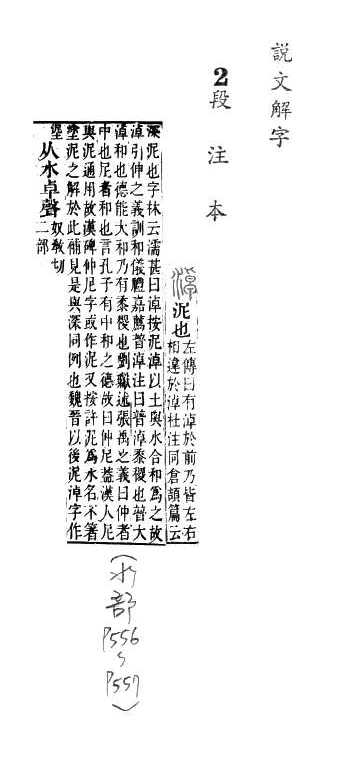 説文解字
2段注本
淖泥也左傳曰有淖於前乃皆左右
相違於淖杜注同倉頡篇云
深泥也字林云濡甚曰淖按泥淖以土與水合和爲之故
淖引伸之義訓和儀禮嘉薦普淖注曰普淖黍稷也普大
淖和也德能大和乃有黍稷也劉瓛述張禹之義曰仲者
中也尼者和也言孔子有中和之德故曰仲尼葢漢人尼
與泥通用故漢碑仲尼字或作泥又按許泥爲水名不箸
塗泥之解於此補見是與深同例也魏晉以後泥淖字作
埿从水卓聲奴敎切
二部
(水部
P556
~
P557)